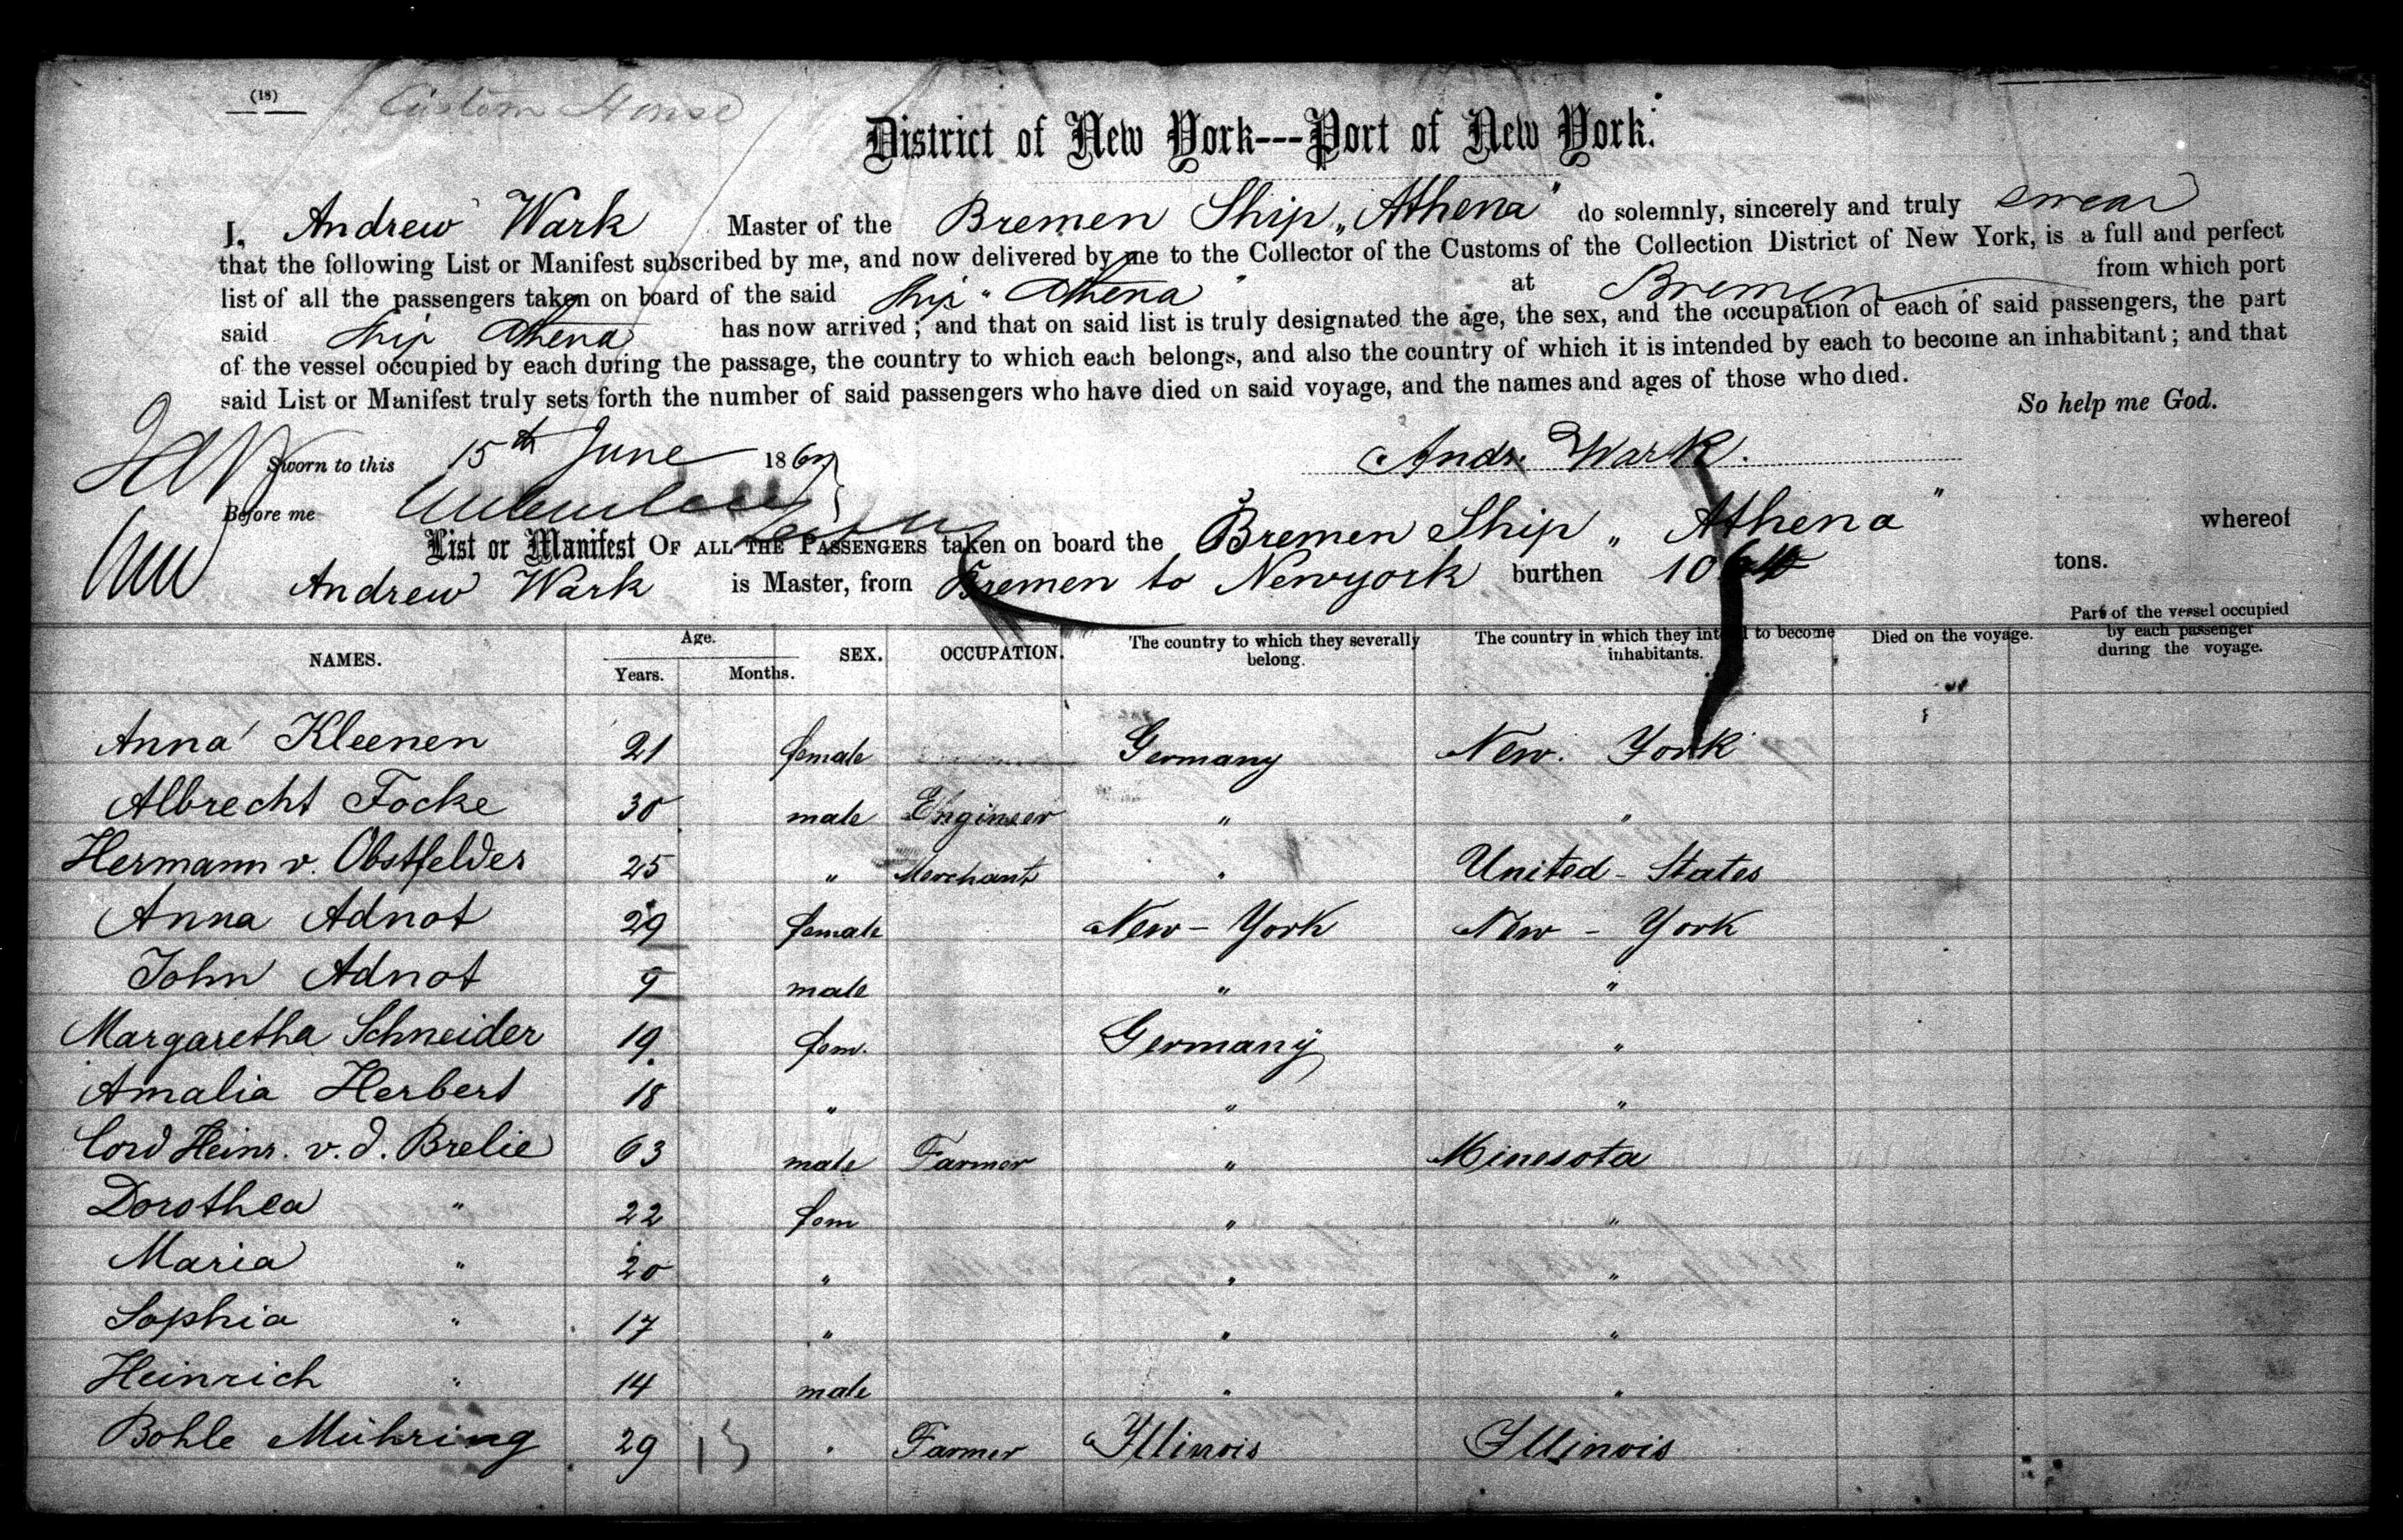 (18)
Custom House
District of New York---Port of New York.
I, Andrew Wark Master of the Bremen Ship „Athena" do solemnly, sincerely and truly swear
that the following List or Manifest subscribed by me, and now delivered by me to the Collector of the Customs of the Collection District of New York, is a full and perfect
list of all the passengers taken on board of the said ship „Athena" at Bremen from which port
said ship Athena has now arrived; and that on said list is truly designated the age, the sex, and the occupation of each of said passengers, the part
of the vessel occupied by each during the passage, the country to which each belongs, and also the country of which it is intended by each to become an inhabitant; and that
said List or Manifest truly sets forth the number of said passengers who have died on said voyage, and the names and ages of those who died.
So help me God.
Sworn to this 15th June 186
Andr. Wark.
Before me
List or Manifest OF ALL THE PASSENGERS taken on board the Bremen Ship „Athena" whereof
Andrew Wark is Master, from Bremen to Newyork burthen tons.
NAMES. Age. Years. Months. SEX. OCCUPATION. The country to which they severally belong. The country in which they intend to become inhabitants. Died on the voyage. Part of the vessel occupied by each passenger during the voyage.
Anna Kleenen 21 female Germany New York
Albrecht Focke 30 male Engineer " "
Hermann v. Obstfelder 25 " Merchant " United-States
Anna Adnot 29 female New-York New-York
John Adnot 9 male " "
Margaretha Schneider 19 fem. Germany "
Amalia Herbert 18 " " "
Cord Heinr. v. d. Brelie 63 male Farmer " Minesota
Dorothea " 22 fem " "
Maria " 20 " " "
Sophia " 17 " " "
Heinrich " 14 male " "
Bohle Mühring 29 13 " Farmer Illinois Illinois